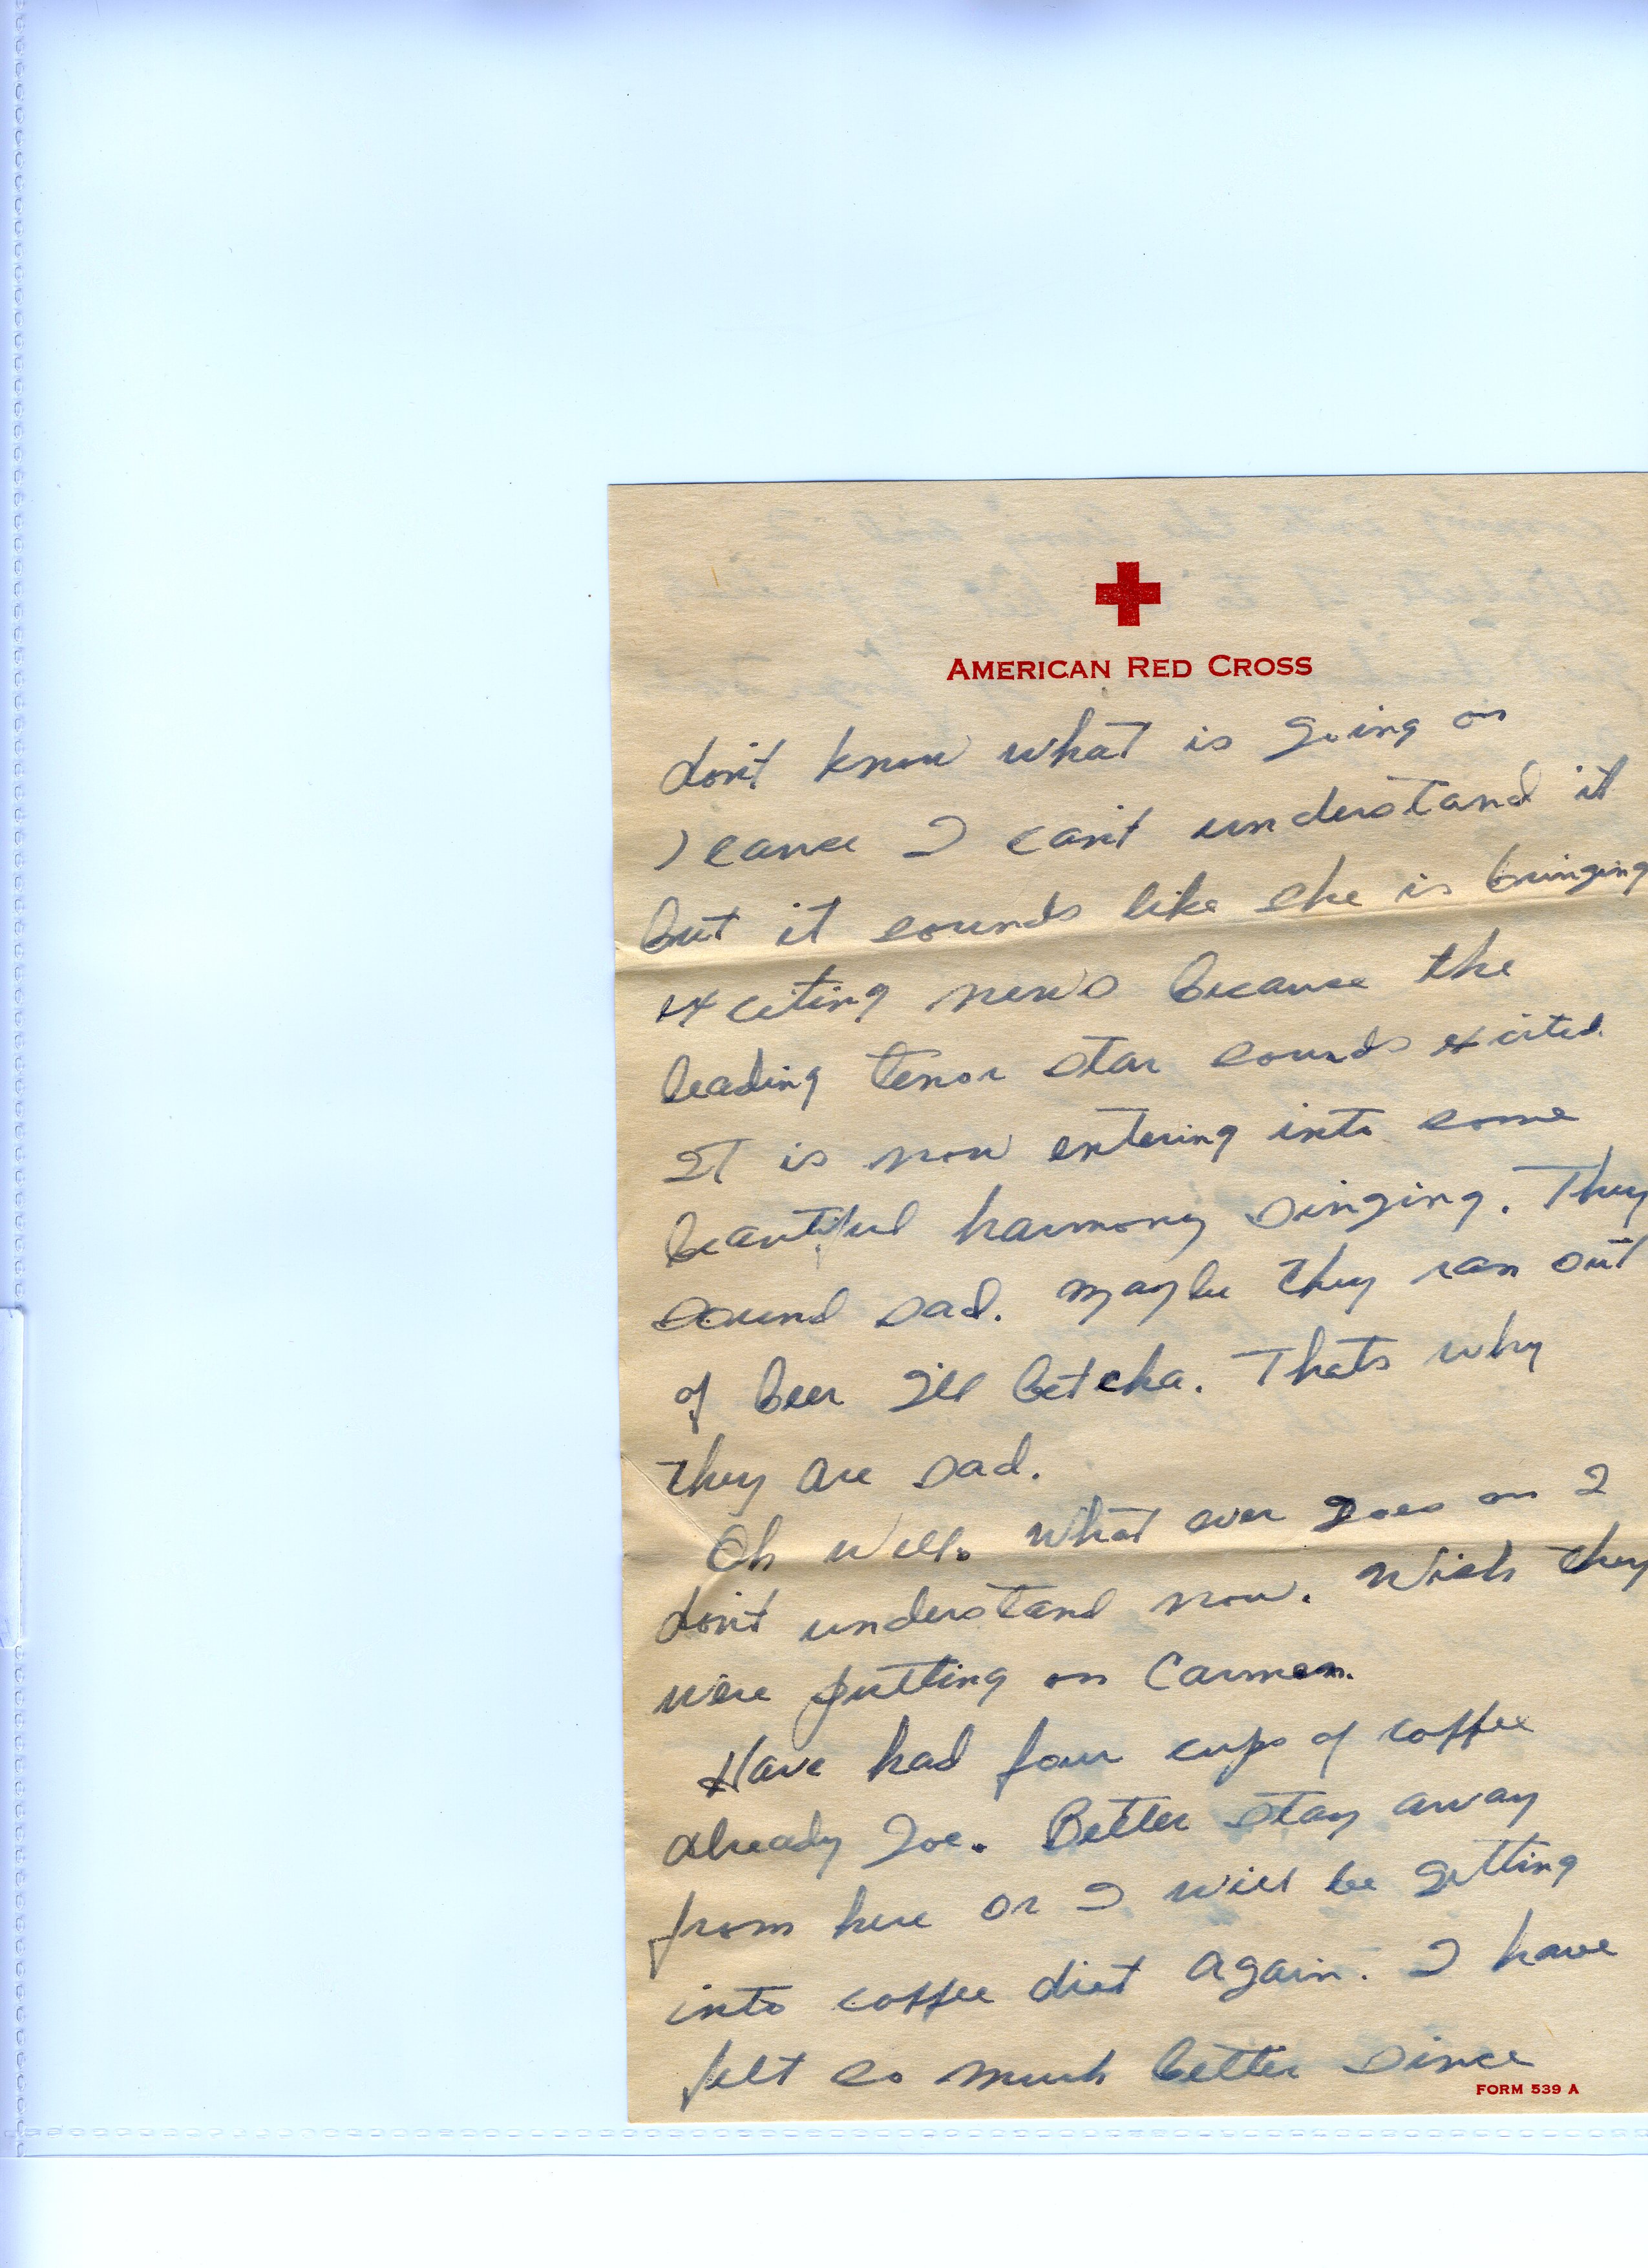 AMERICAN RED CROSS
don't know what is going on
'cause I can't understand it
but it sounds like she is bringing
exciting news because the
leading tenor star sounds excited.
It is now entering into some
beautiful harmony singing. They
sound sad. Maybe they ran out
of beer I'll betcha. Thats why
they are sad.
Oh well. What ever goes on I
don't understand now. Wish they
were putting on Carmen.
Have had four cups of coffee
already Joe. Better stay away
from here or I will be getting
into coffee diet again. I have
felt so much better since
FORM 539 A